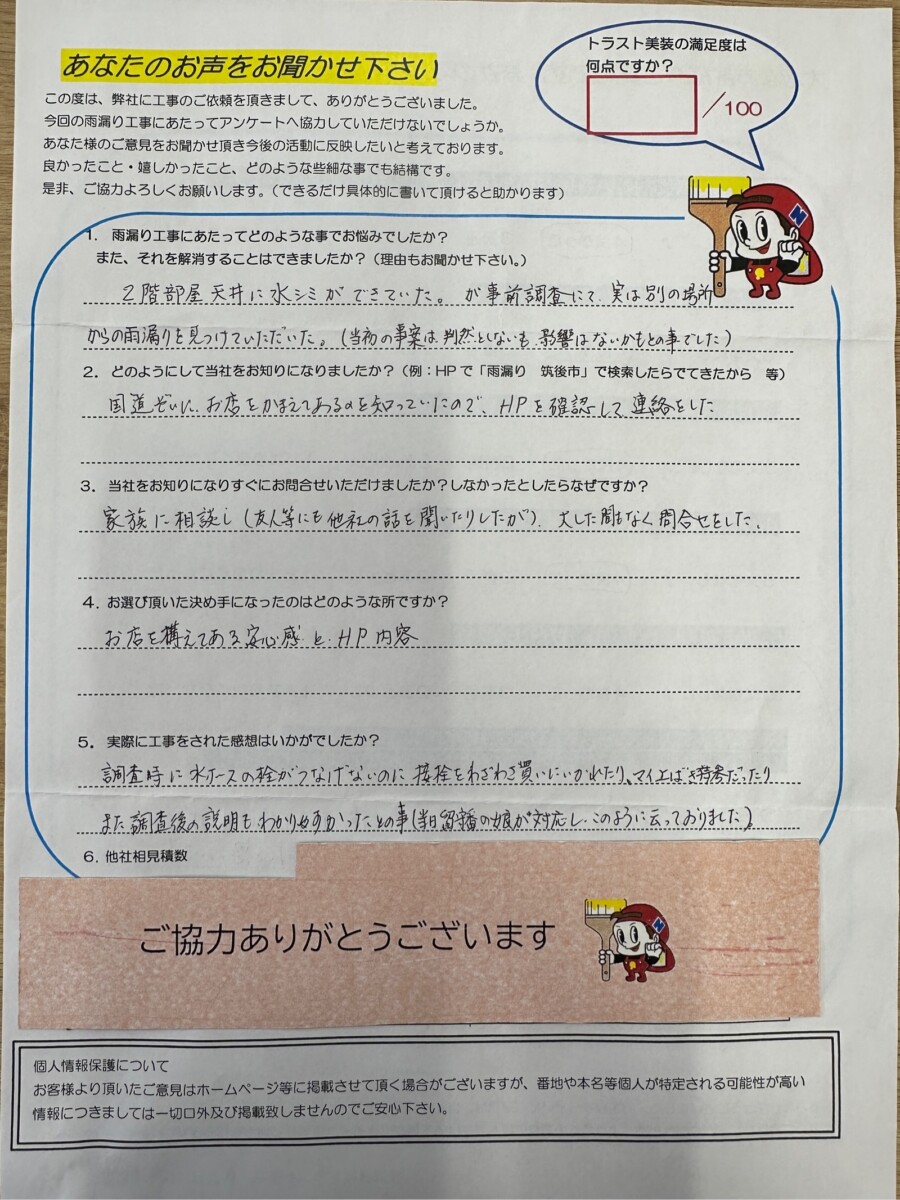 あなたのお声をお聞かせ下さい
トラスト美装の満足度は
何点ですか？
／100
この度は、弊社に工事のご依頼を頂きまして、ありがとうございました。
今回の雨漏り工事にあたってアンケートへ協力していただけないでしょうか。
あなた様のご意見をお聞かせ頂き今後の活動に反映したいと考えております。
良かったこと・嬉しかったこと、どのような些細な事でも結構です。
是非、ご協力よろしくお願いします。（できるだけ具体的に書いて頂けると助かります）
N
1. 雨漏り工事にあたってどのような事でお悩みでしたか？
また、それを解消することはできましたか？（理由もお聞かせ下さい。）
2階部屋天井に水シミができていた。が事前調査にて、実は別の場所
からの雨漏りを見つけていただいた。（当初の事案は判然としないも影響はないかもとの事でした）
2. どのようにして当社をお知りになりましたか？（例：HPで「雨漏り 筑後市」で検索したらでてきたから 等）
国道ぞいに、お店をかまえてあるのを知っていたので、HPを確認して連絡をした
3. 当社をお知りになりすぐにお問合せいただけましたか？しなかったとしたらなぜですか？
家族に相談し（友人等にも他社の話を聞いたりしたが）、大した間もなく問合せをした、
4. お選び頂いた決め手になったのはどのような所ですか？
お店を構えてある安心感とHP内容
5. 実際に工事をされた感想はいかがでしたか？
調査時に水ホースの栓がつなげないのに 接栓をわざわざ買いにいかれたり、マイエばき持参だったり
また調査後の説明もわかりやすかったとの事（当日留守番の娘が対応し、このように云っておりました）
6. 他社相見積数
ご協力ありがとうございます
N
個人情報保護について
お客様より頂いたご意見はホームページ等に掲載させて頂く場合がございますが、番地や本名等個人が特定される可能性が高い
情報につきましては一切口外及び掲載致しませんのでご安心下さい。